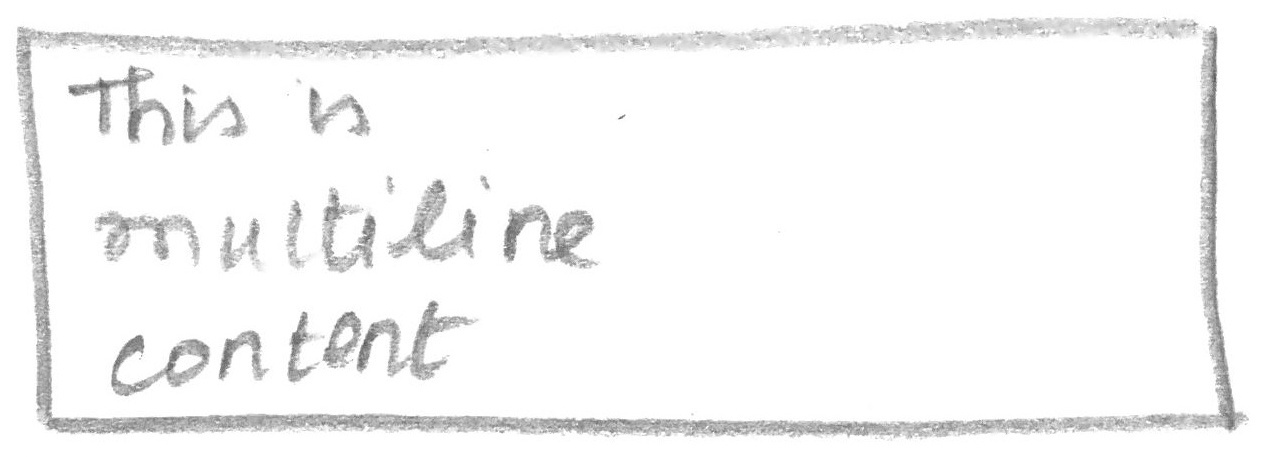 This is
multiline
content